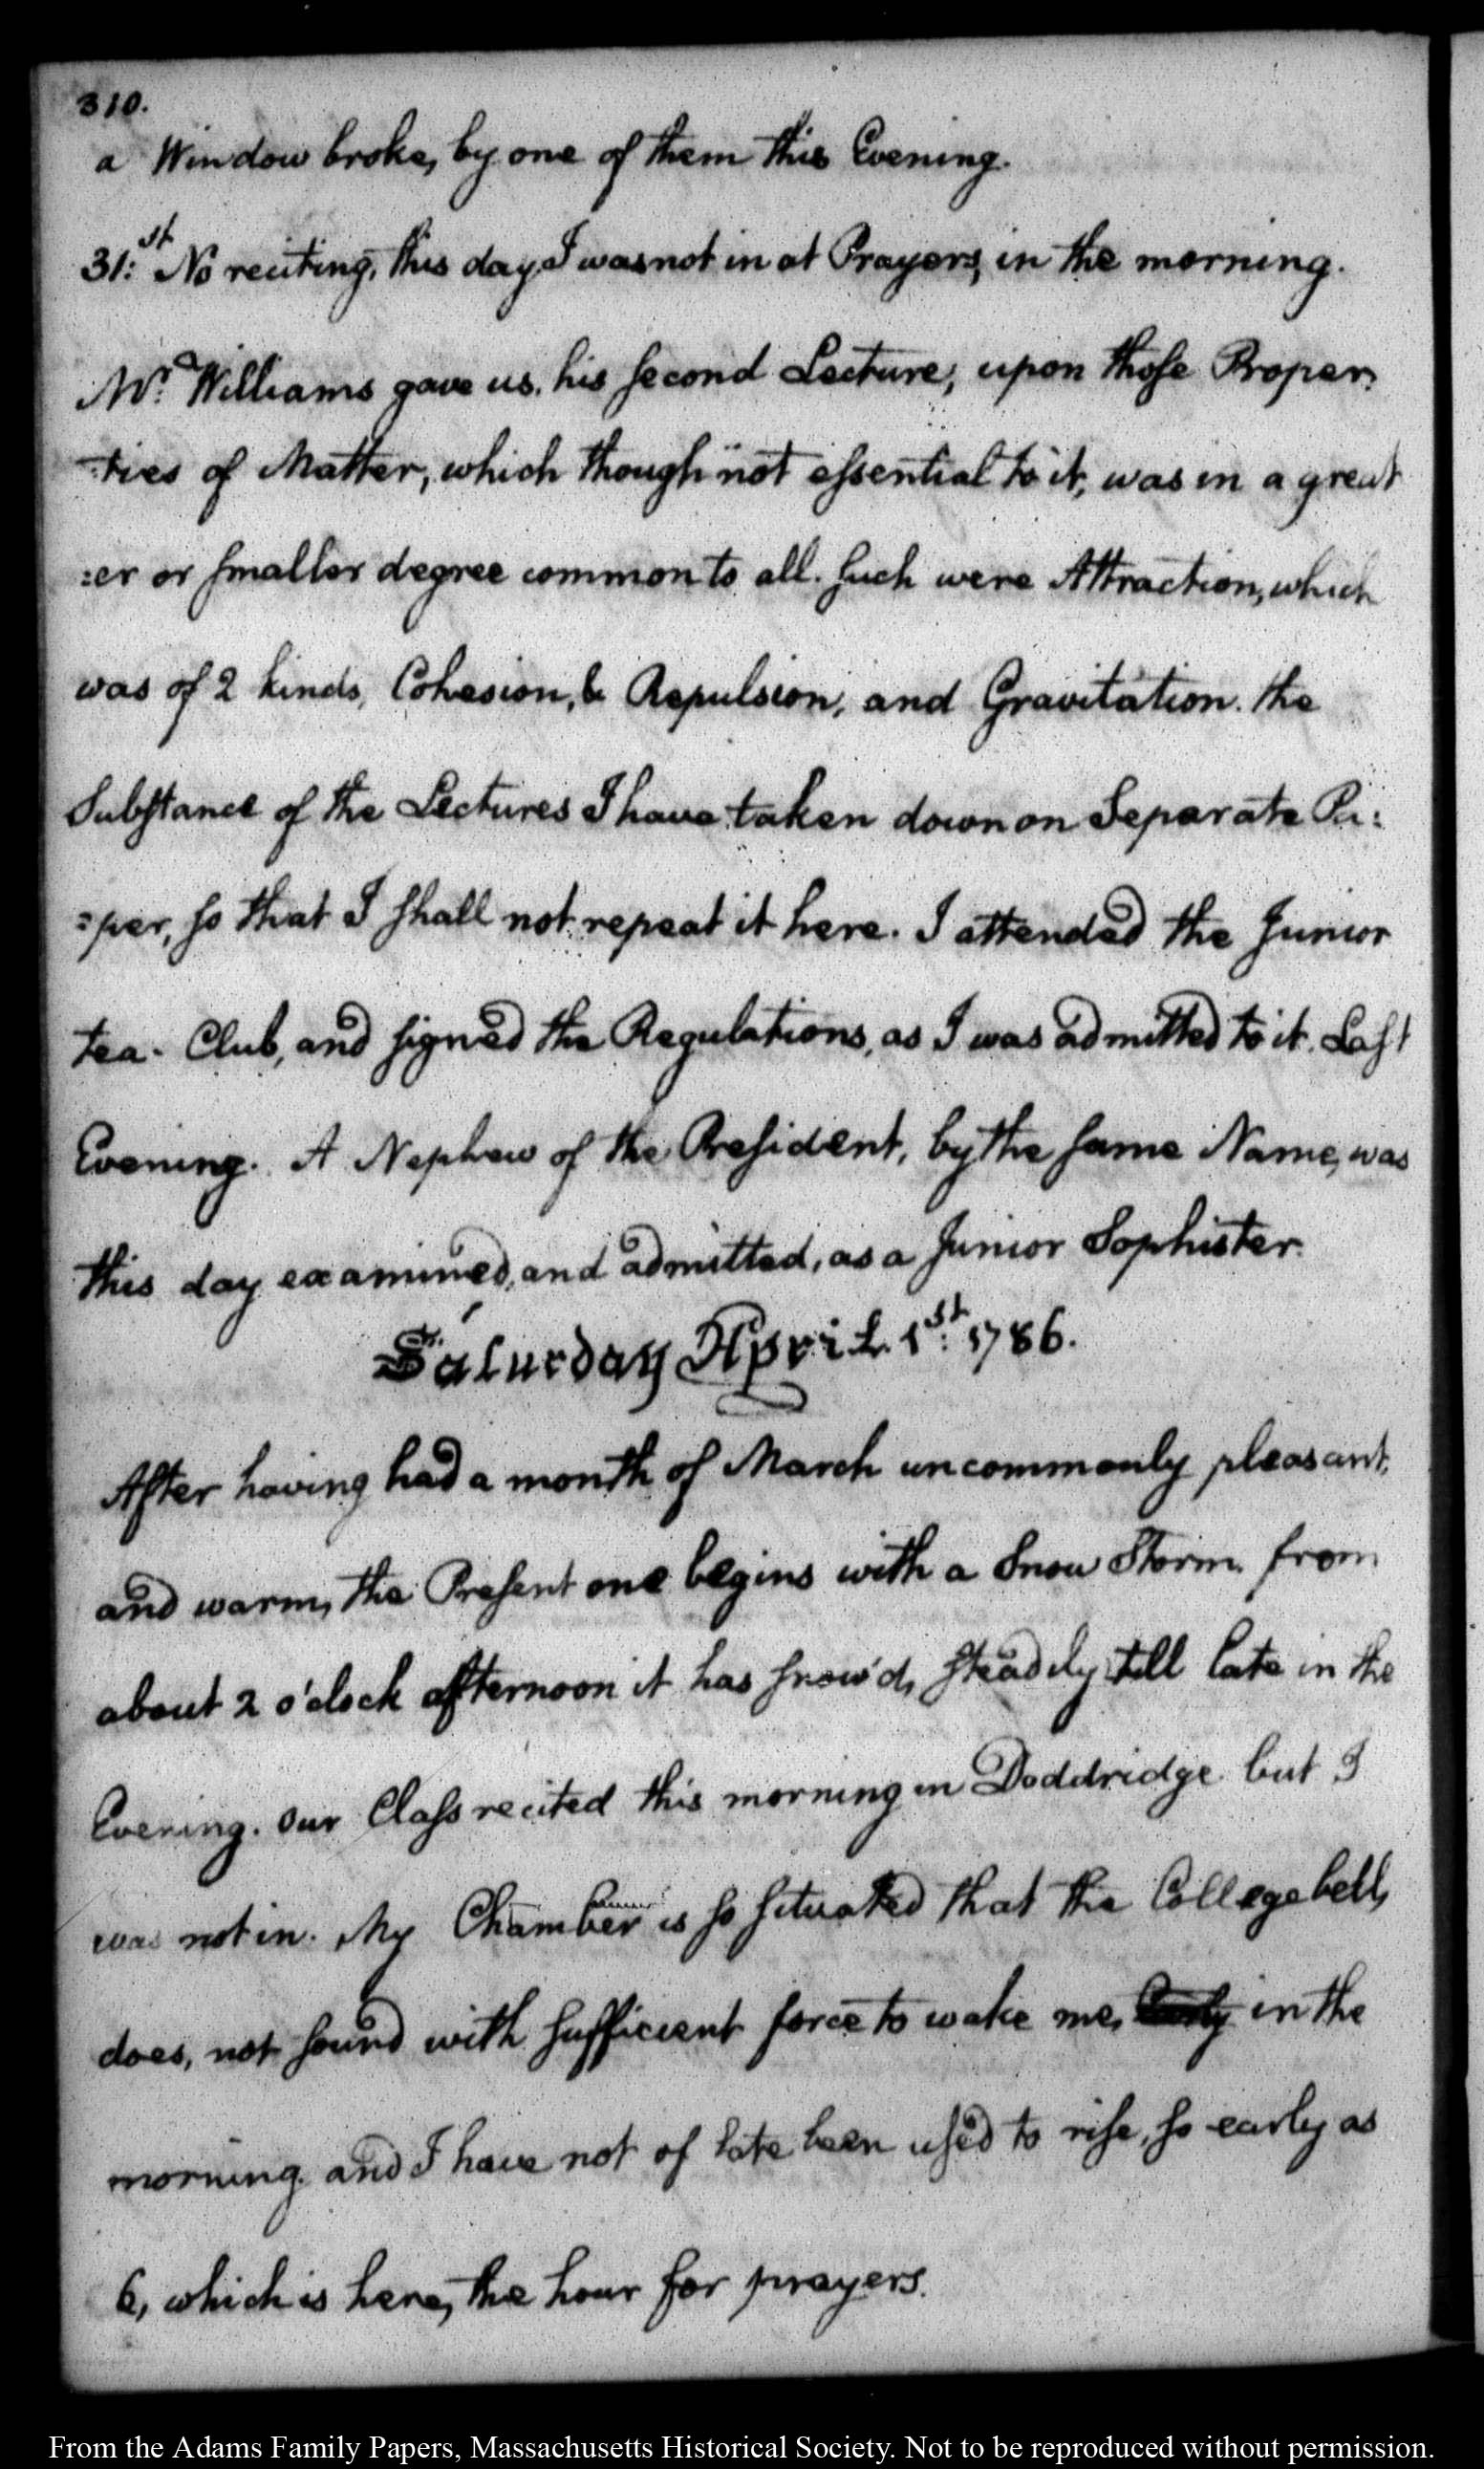 310.
a Window broke, by one of them this Evening.
31:st No reciting, this day I was not in at Prayers, in the morning.
Mr. Williams gave us, his second Lecture, upon those Proper:
:ties of Matter, which though not essential to it, was in a great
:er or smaller degree common to all. Such were Attraction, which
was of 2 kinds, Cohesion, & Repulsion, and Gravitation. the
Substance of the Lectures I have taken down on Separate Pa:
:per, so that I shall not repeat it here. I attended the Junior
tea-Club, and signed the Regulations, as I was admitted to it. Last
Evening. A Nephew of the President, by the same Name, was
this day examined, and admitted, as a Junior Sophister.
Saturday April 1st: 1786.
After having had a month of March uncommonly pleasant,
and warm, the Present one begins with a Snow Storm. from
about 2 o'clock afternoon it has snow'd, steadily till late in the
Evening. Our Class recited this morning in Doddridge but I
was not in. My Chamber is so situated that the College bell,
does, not sound with sufficient force to wake me, in the
morning. and I have not of late been used to rise, so early as
6, which is here, the hour for prayers.
From the Adams Family Papers, Massachusetts Historical Society. Not to be reproduced without permission.